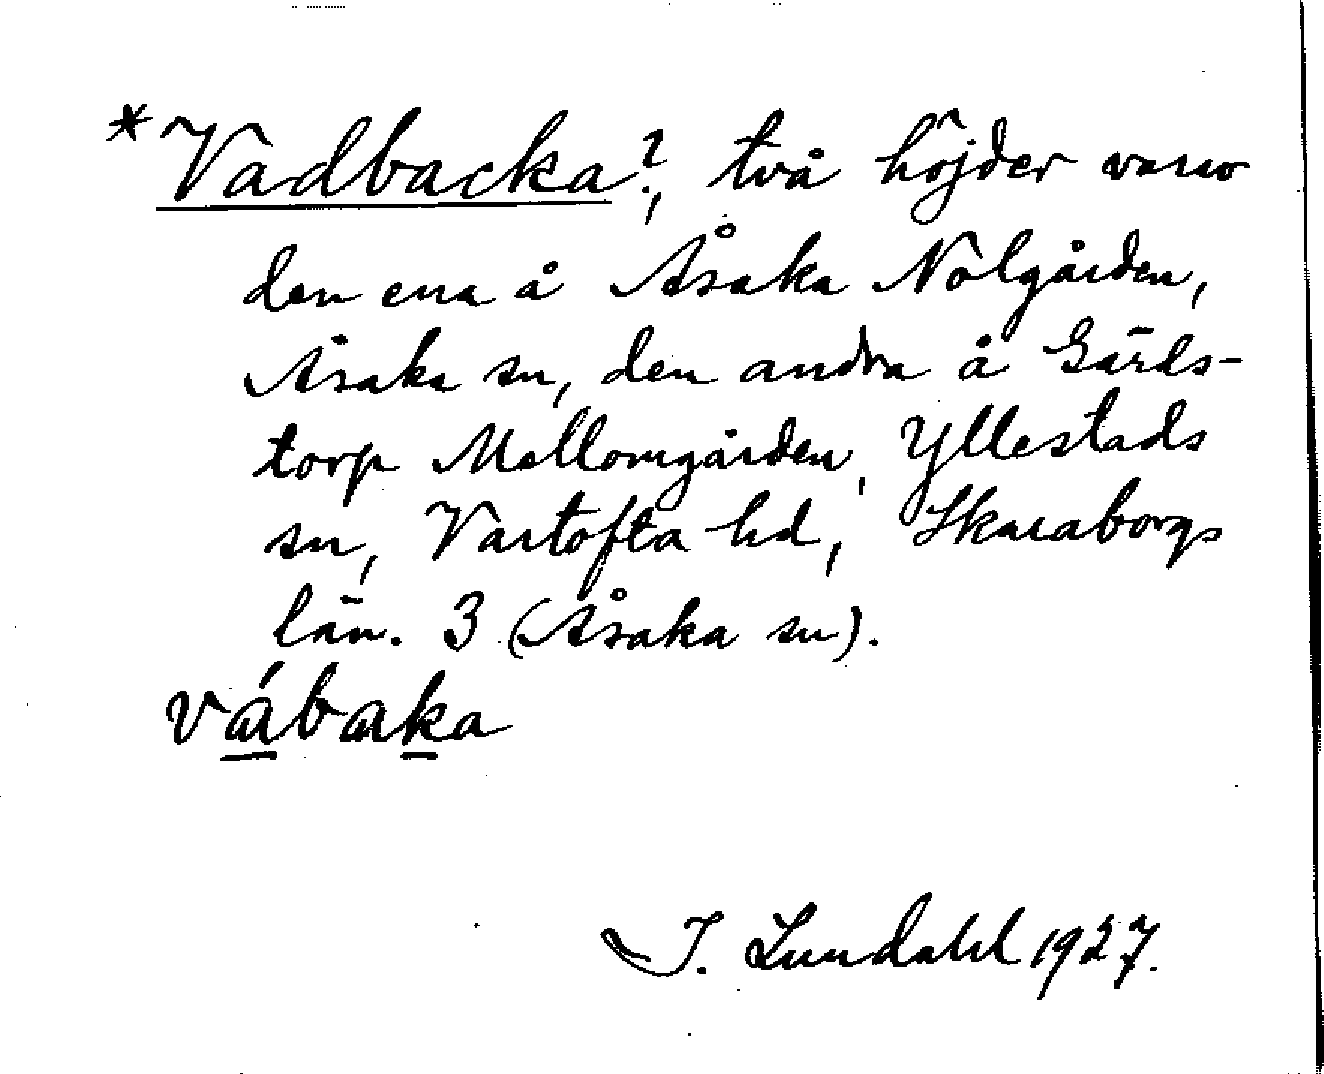 *Vadbacka?, två höjder varav
den ena å Åsaka Nolgården,
Åsaka sn, den andra å Gärds-
torp Mellomgården, Yllestads
sn, Vartofta hd, Skaraborgs
län. 3 (Åsaka sn).
vábaka
I. Lundahl 1927.